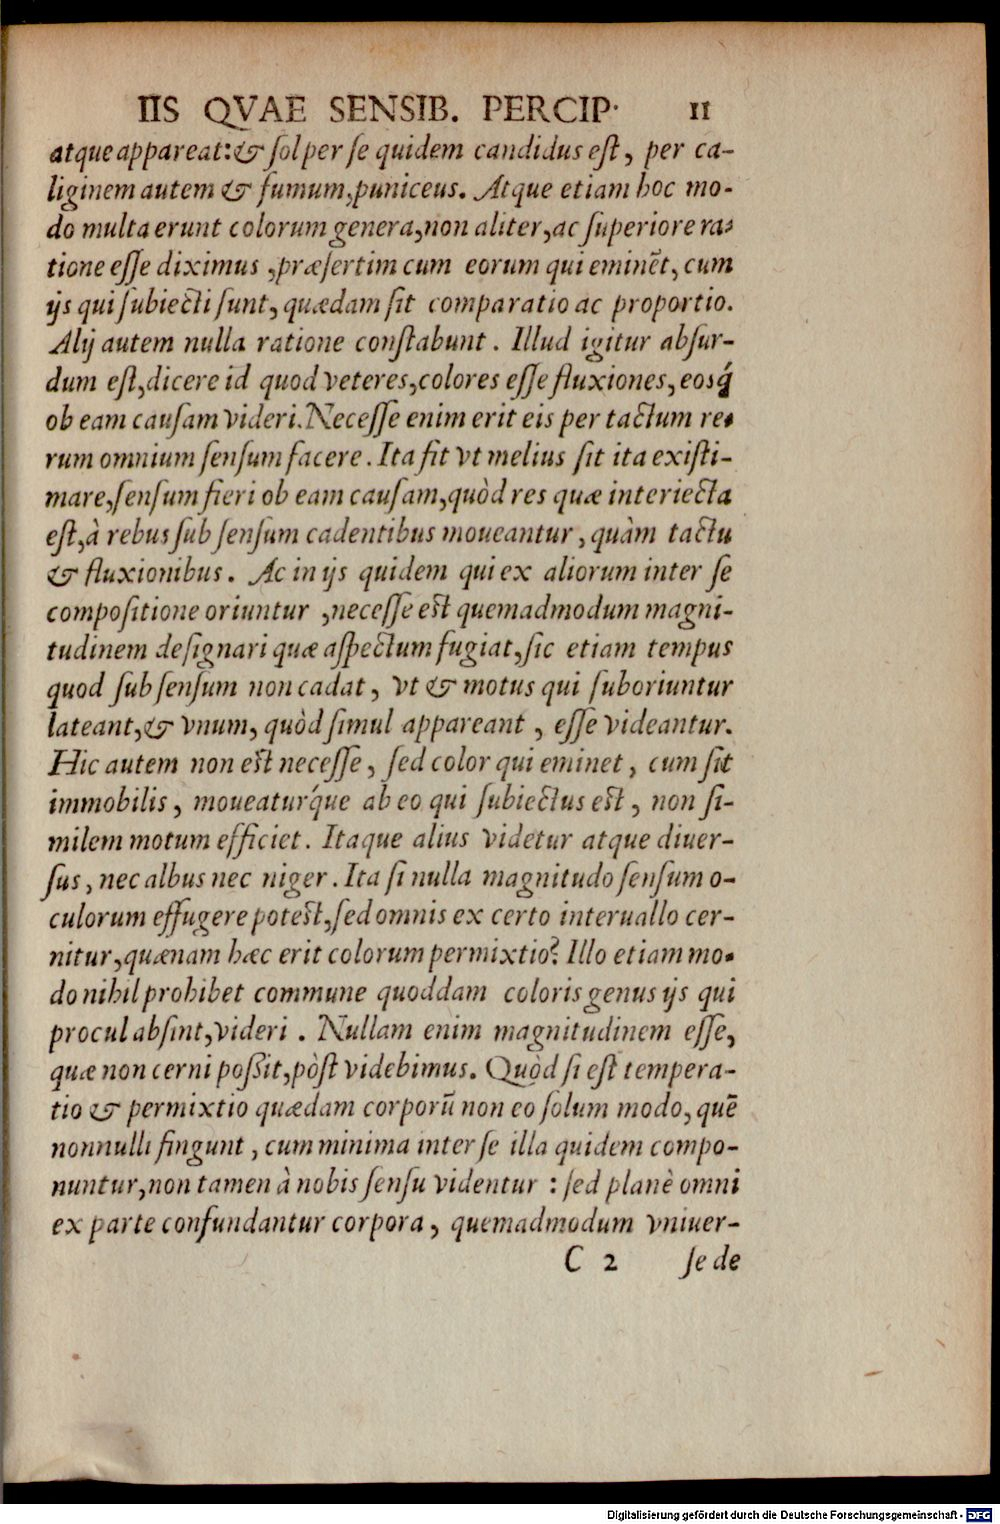 IIS QVAE SENSIB. PERCIP. 11
atque appareat: & ſol per ſe quidem candidus eſt, per ca-
liginem autem & fumum, puniceus. Atque etiam hoc mo-
do multa erunt colorum genera, non aliter, ac ſuperiore ra-
tione eſſe diximus, præſertim cum eorum qui eminẽt, cum
ijs qui ſubiecti ſunt, quædam ſit comparatio ac proportio.
Alij autem nulla ratione conſtabunt. Illud igitur abſur-
dum eſt, dicere id quod veteres, colores eſſe fluxiones, eosq́
ob eam cauſam videri. Neceſſe enim erit eis per tactum re-
rum omnium ſenſum facere. Ita fit vt melius ſit ita exiſti-
mare, ſenſum fieri ob eam cauſam, quòd res quæ interiecta
eſt, à rebus ſub ſenſum cadentibus moueantur, quàm tactu
& fluxionibus. Ac in ijs quidem qui ex aliorum inter ſe
compoſitione oriuntur, neceſſe eſt quemadmodum magni-
tudinem deſignari quæ aſpectum fugiat, ſic etiam tempus
quod ſub ſenſum non cadat, vt & motus qui ſuboriuntur
lateant, & vnum, quòd ſimul appareant, eſſe videantur.
Hic autem non eſt neceſſe, ſed color qui eminet, cum ſit
immobilis, moueaturq́ue ab eo qui ſubiectus eſt, non ſi-
milem motum efficiet. Itaque alius videtur atque diuer-
ſus, nec albus nec niger. Ita ſi nulla magnitudo ſenſum o-
culorum effugere poteſt, ſed omnis ex certo interuallo cer-
nitur, quænam hæc erit colorum permixtio? Illo etiam mo-
do nihil prohibet commune quoddam coloris genus ijs qui
procul abſint, videri. Nullam enim magnitudinem eſſe,
quæ non cerni poſſit, pòſt videbimus. Quòd ſi eſt tempera-
tio & permixtio quædam corporũ non eo ſolum modo, quẽ
nonnulli fingunt, cum minima inter ſe illa quidem compo-
nuntur, non tamen à nobis ſenſu videntur: ſed planè omni
ex parte confundantur corpora, quemadmodum vniuer-
C 2 ſe de
Digitalisierung gefördert durch die Deutsche Forschungsgemeinschaft - DFG